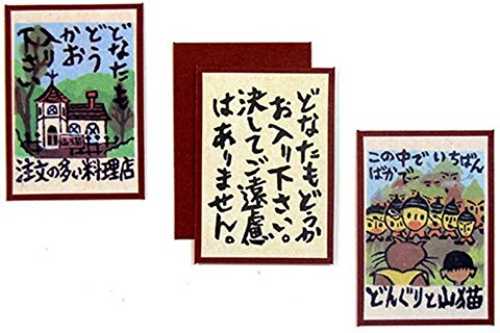 どなたも
どうか
かお
入り
下さい
注文の多い料理店
どなたもどうか
お入り下さい。
決してご遠慮
はありません。
この中でいちばん
ばかで…
どんぐりと山猫